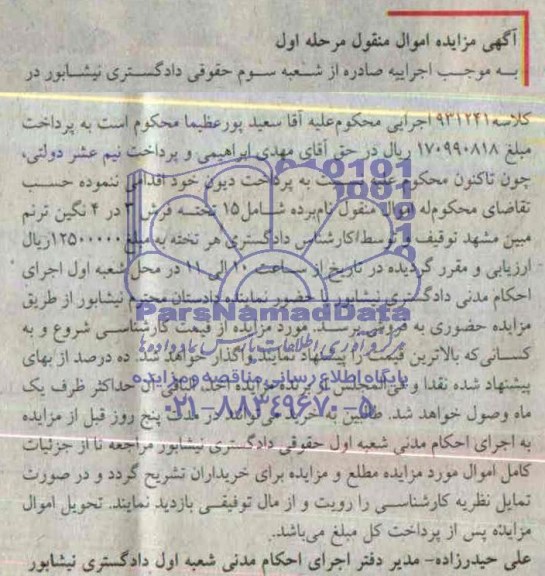 آگهی مزایده اموال منقول مرحله اول
به موجب اجراییه صادره از شعبه سوم حقوقی دادگستری نیشابور در
کلاسه ۹۳۱۲۴۱ اجرایی محکوم‌علیه آقا سعید پورعظیما محکوم است به پرداخت
مبلغ ۱۷۰۹۹۰۸۱۸ ریال در حق آقای مهدی ابراهیمی و پرداخت نیم عشر دولتی،
چون تاکنون محکوم علیه نسبت به پرداخت دیون خود اقدامی ننموده حسب
تقاضای محکوم‌له اموال منقول نامبرده شامل ۱۵ تخته فرش ۳ در ۴ نگین ترنم
مبین مشهد توقیف و توسط کارشناس دادگستری هر تخته به مبلغ ۱۲۵۰۰۰۰۰ ریال
ارزیابی و مقرر گردیده در تاریخ از ساعت ۱۰ الی ۱۱ در محل شعبه اول اجرای
احکام مدنی دادگستری نیشابور با حضور نماینده دادستان محترم نیشابور از طریق
مزایده حضوری به فروش برسد. مورد مزایده از قیمت کارشناسی شروع و به
کسانی که بالاترین قیمت را پیشنهاد نمایند واگذار خواهد شد. ده درصد از بهای
پیشنهاد شده نقدا و فی‌المجلس از برنده مزایده اخذ، مابقی آن حداکثر ظرف یک
ماه وصول خواهد شد. طالبین به خرید می‌توانند در مدت پنج روز قبل از مزایده
به اجرای احکام مدنی شعبه اول حقوقی دادگستری نیشابور مراجعه تا از جزئیات
کامل اموال مورد مزایده مطلع و مزایده برای خریداران تشریح گردد و در صورت
تمایل نظریه کارشناسی را رویت و از مال توقیفی بازدید نمایند. تحویل اموال
مزایده پس از پرداخت کل مبلغ می‌باشد.
علی حیدرزاده- مدیر دفتر اجرای احکام مدنی شعبه اول دادگستری نیشابور
ParsNamadData
مرکز فرآوری اطلاعات پارس نماد داده‌ها
پایگاه اطلاع رسانی مناقصه و مزایده
۰۲۱-۸۸۳۴۹۶۷۰-۵